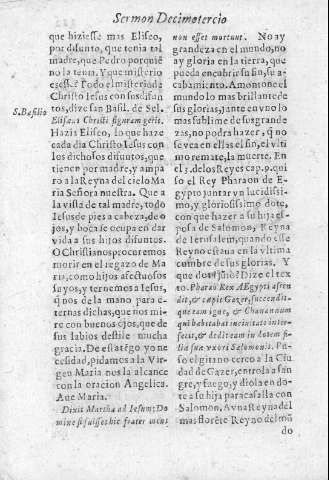 Sermon Decimotercio
que hiziesse mas Eliseo,
por difunto, que tenia tal
madre, que Pedro porque
no la tenia. Y que misterio
es esse? Todo el misterio de
Christo Iesus con sus difun
tos, dize san Basil. de Sel.
S. Basilio
Elisæus Christi figuram gerit.
Hazia Eliseo, lo que haze
cada dia Christo Iesus con
los dichosos difuntos, que
tienen por madre, y ampa
ro a la Reyna del cielo Ma
ria Señora nuestra. Que a
la vista de tal madre, todo
Iesus de pies a cabeza, de o
jos, y boca se ocupa en dar
vida a sus hijos difuntos.
O Christianos procuremos
morir en el regazo de Ma
ria, como hijos afectuosos
suyos, y ternemos a Iesus,
q̃ nos de la mano para e-
ternas dichas, que nos mi-
re con buenos ojos, que de
sus labios destile mucha
gracia. De esta tẽgo yo ne
cessidad, pidamos a la Vir-
gen Maria nos la alcance
con la oracion Angelica.
Aue Maria.
Dixit Martha ad Iesum; Do
mine si fuisses hic frater meus
non esset mortuus. No ay
grandeza en el mundo, no
ay gloria en la tierra, que
pueda encubrir su fin, su a-
cabamiento. Amontone el
mundo lo mas brillante de
sus glorias, junte en vno lo
mas sublime de sus grande
zas, no podra hazer, q̃ no
se vea en ellas el fin, el vlti
mo remate, la muerte. En
el 3. de los Reyes cap. 9. qui
so el Rey Pharaon de E-
gypto juntar vn lucidissi-
mo, y gloriosissimo dote,
con que hazer a su hija es-
posa de Salomon, Reyna
de Ierusalem, quando esse
Reyno estaua en la vltima
cumbre de sus glorias. Y
que dotò? Dize el tex
to. Pharao Rex AEgypti ascen
dit, & cœpit Gazer, succendit-
que eam igne, & Chananæum
qui habitabat in ciuitate inter-
fecit, & dedit eam in dotem fi-
liæ suæ vxori Salomonis. Pu-
so el gitano cerco a la Ciu
dad de Gazer, entrola a san
gre, y fuego, y diola en do-
te a su hija para casalla con
Salomon. A vna Reyna del
mas florẽte Reyno del mũ
do